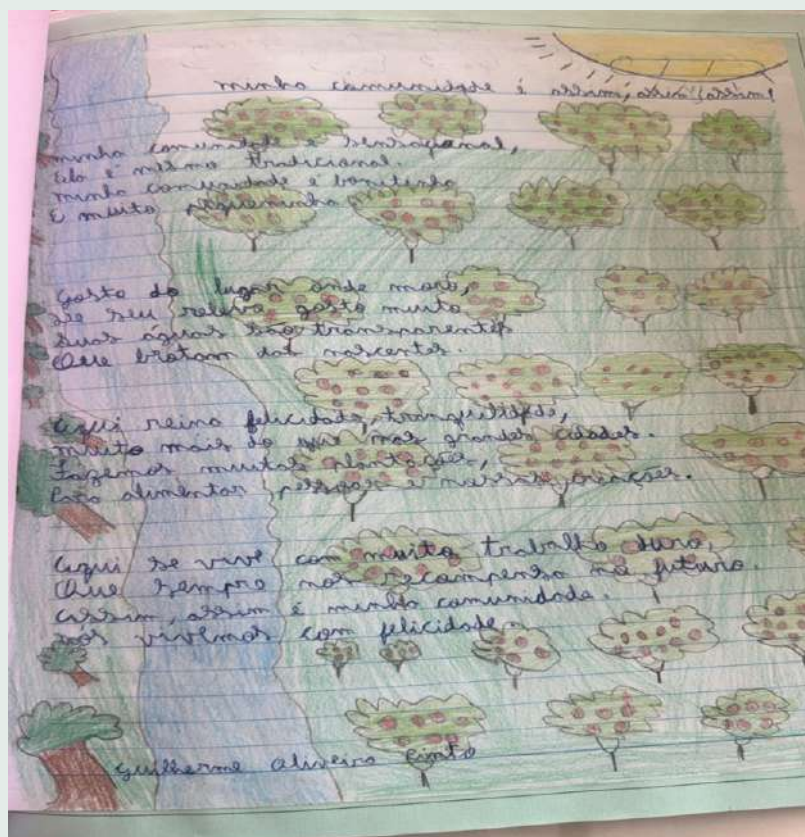 minha comunidade é assim, assim, assim!
minha comunidade é sensacional,
Ela é mesmo tradicional.
minha comunidade é bonitinha
E muito pequeninha
Gosto do lugar onde moro,
De seu relevo gosto muito
Suas águas são transparentes
Que brotam das nascentes.
Aqui reina felicidade, tranquilidade,
muito mais do que nas grandes cidades.
Fazemos muitas plantações,
Para alimentar pessoas e nossas criações.
Aqui se vive com muito trabalho duro,
Que sempre nos recompensa no futuro.
Assim, assim é minha comunidade.
nos vivemos com felicidade.
Guilherme Oliveira Pinto